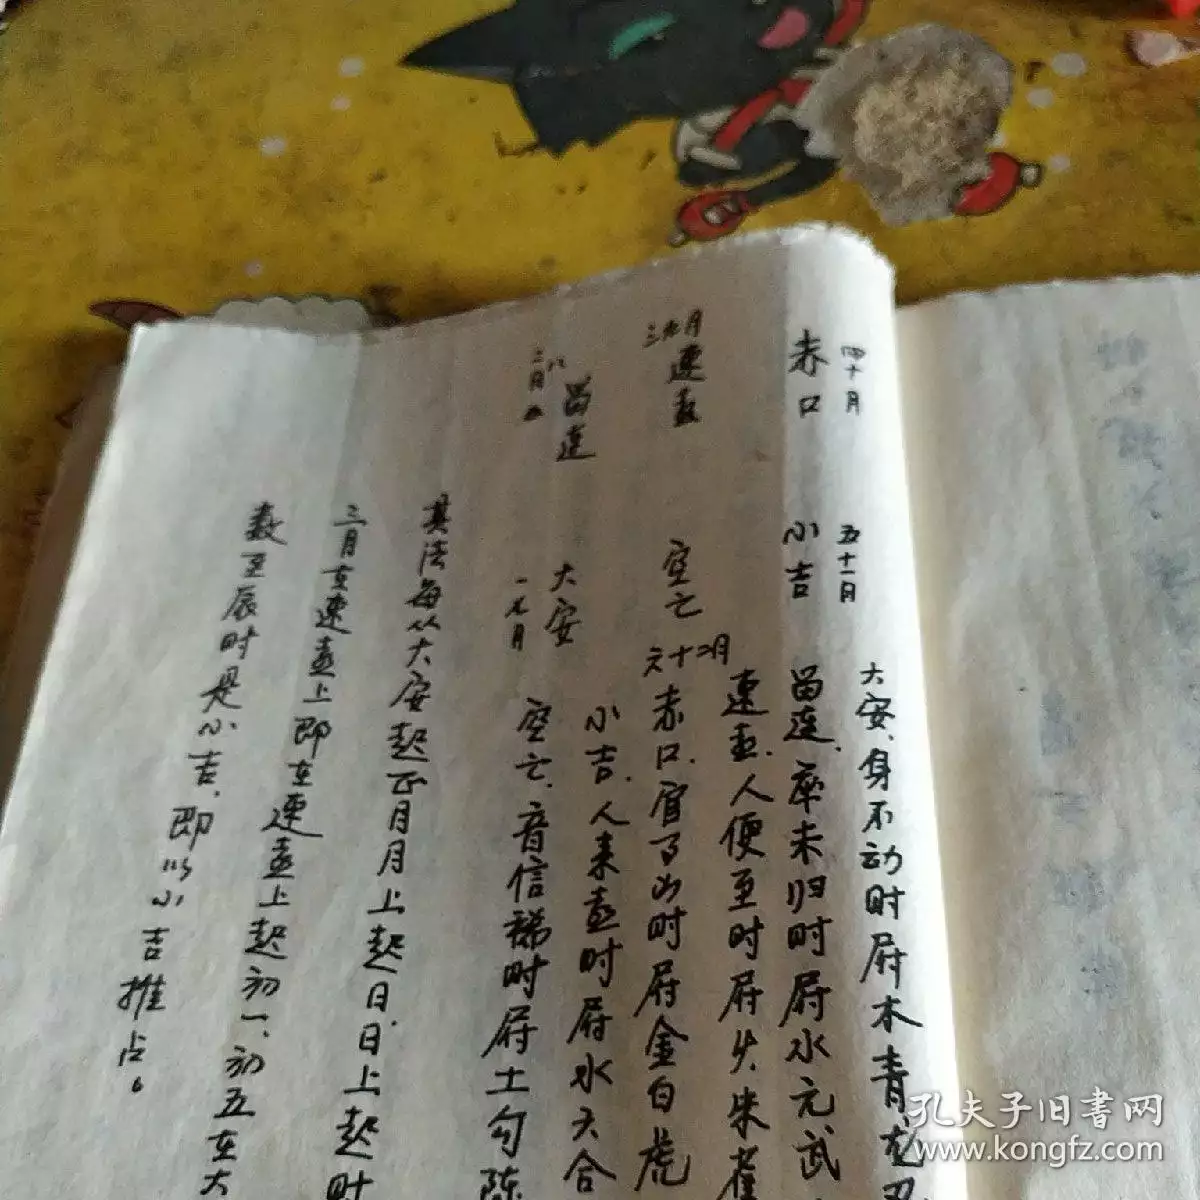 四十月
赤口
五十一月
小吉
三九月
速喜
空亡
六十二月
二八月
留连
大安
一七月
大安、身不动时属木青龙
留连、卒未归时属水元武
速喜、人便至时属火朱雀
赤口、官事凶时属金白虎
小吉、人来喜时属水六合
空亡、音信稀时属土勾陈
其法每从大安起正月月上起日、日上起时
三月在速喜上即在速喜上起初一、初五在大
数至辰时是小吉、即以小吉推占。
孔夫子旧书网
www.kongfz.com